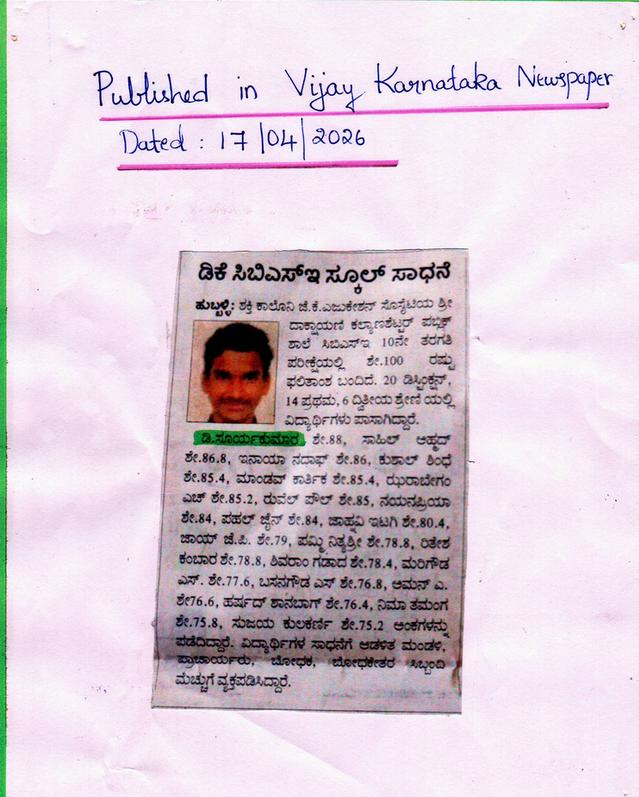 Published in Vijay Karnataka Newspaper
Dated : 17/04/2026
ಡಿಕೆ ಸಿಬಿಎಸ್ಇ ಸ್ಕೂಲ್ ಸಾಧನೆ
ಹುಬ್ಬಳ್ಳಿ: ಶಕ್ತಿ ಕಾಲೊನಿ ಜೆ.ಕೆ.ಎಜುಕೇಶನ್ ಸೊಸೈಟಿಯ ಶ್ರೀ
ದಾಕ್ಷಾಯಣಿ ಕಲ್ಯಾಣಶೆಟ್ಟರ್ ಪಬ್ಲಿಕ್
ಶಾಲೆ ಸಿಬಿಎಸ್ಇ 10ನೇ ತರಗತಿ
ಪರೀಕ್ಷೆಯಲ್ಲಿ ಶೇ.100 ರಷ್ಟು
ಫಲಿತಾಂಶ ಬಂದಿದೆ. 20 ಡಿಸ್ಟಿಂಕ್ಷನ್,
14 ಪ್ರಥಮ, 6 ದ್ವಿತೀಯ ಶ್ರೇಣಿ ಯಲ್ಲಿ
ವಿದ್ಯಾರ್ಥಿಗಳು ಪಾಸಾಗಿದ್ದಾರೆ.
ಡಿ.ಸೂರ್ಯಕುಮಾರ ಶೇ.88, ಸಾಹಿಲ್ ಅಹ್ಮದ್
ಶೇ.86.8, ಇನಾಯಾ ನದಾಫ್ ಶೇ.86, ಕುಶಾಲ್ ಶಿಂಧೆ
ಶೇ.85.4, ಮಾಂಡವ್ ಕಾರ್ತಿಕ ಶೇ.85.4, ಝರಾಬೇಗಂ
ಎಚ್ ಶೇ.85.2, ರುವೆಲ್ ಪೌಲ್ ಶೇ.85, ನಯನಪ್ರಿಯಾ
ಶೇ.84, ಪಹಲ್ ಜೈನ್ ಶೇ.84, ಜಾಹ್ನವಿ ಇಟಗಿ ಶೇ.80.4,
ಜಾಯ್ ಜೆ.ಪಿ. ಶೇ.79, ಪಮ್ಮಿ ನಿತ್ಯಶ್ರೀ ಶೇ.78.8, ರಿತೇಶ
ಕಂಬಾರ ಶೇ.78.8, ಶಿವರಾಂ ಗಡಾದ ಶೇ.78.4, ಮರಿಗೌಡ
ಎಸ್. ಶೇ.77.6, ಬಸನಗೌಡ ಎಸ್ ಶೇ.76.8, ಆಮನ್ ಎ.
ಶೇ76.6, ಹರ್ಷದ್ ಶಾನಬಾಗ್ ಶೇ.76.4, ನಿಮಾ ತಮಂಗ
ಶೇ.75.8, ಸುಜಯ ಕುಲಕರ್ಣಿ ಶೇ.75.2 ಅಂಕಗಳನ್ನು
ಪಡೆದಿದ್ದಾರೆ. ವಿದ್ಯಾರ್ಥಿಗಳ ಸಾಧನೆಗೆ ಆಡಳಿತ ಮಂಡಳಿ,
ಪ್ರಾಚಾರ್ಯರು, ಬೋಧಕ, ಬೋಧಕೇತರ ಸಿಬ್ಬಂದಿ
ಮೆಚ್ಚುಗೆ ವ್ಯಕ್ತಪಡಿಸಿದ್ದಾರೆ.